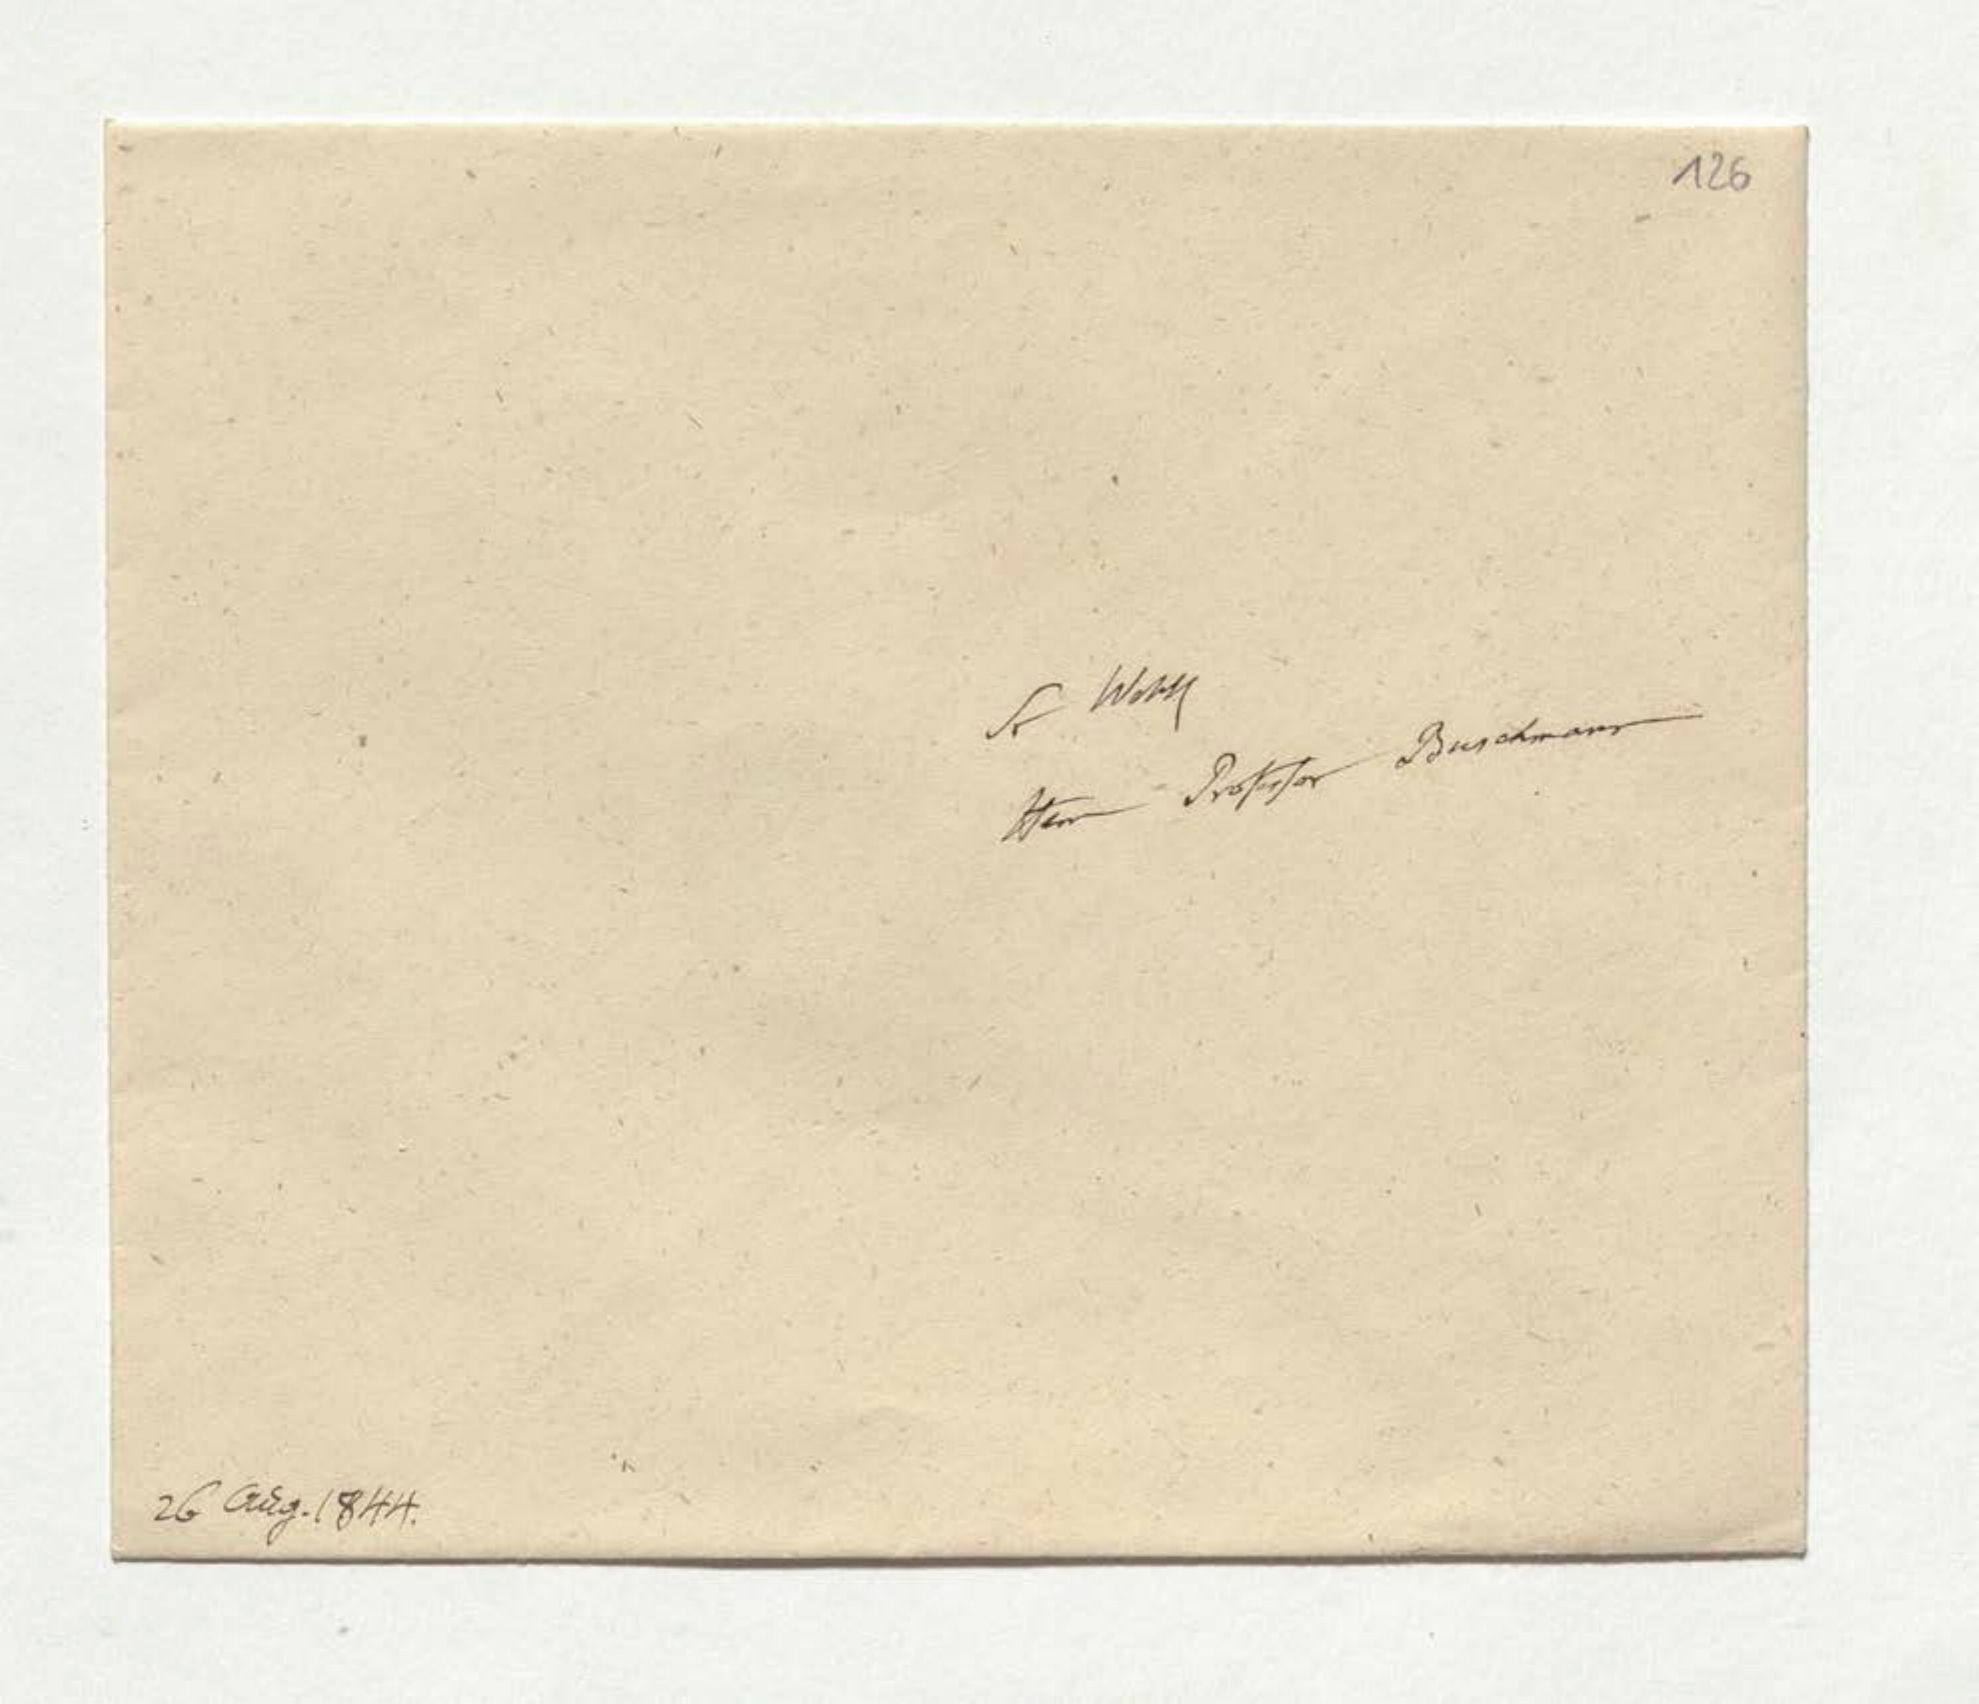 126
Sr Wohlg
Herrn Professor Buschmann
26 Aug. 1844.